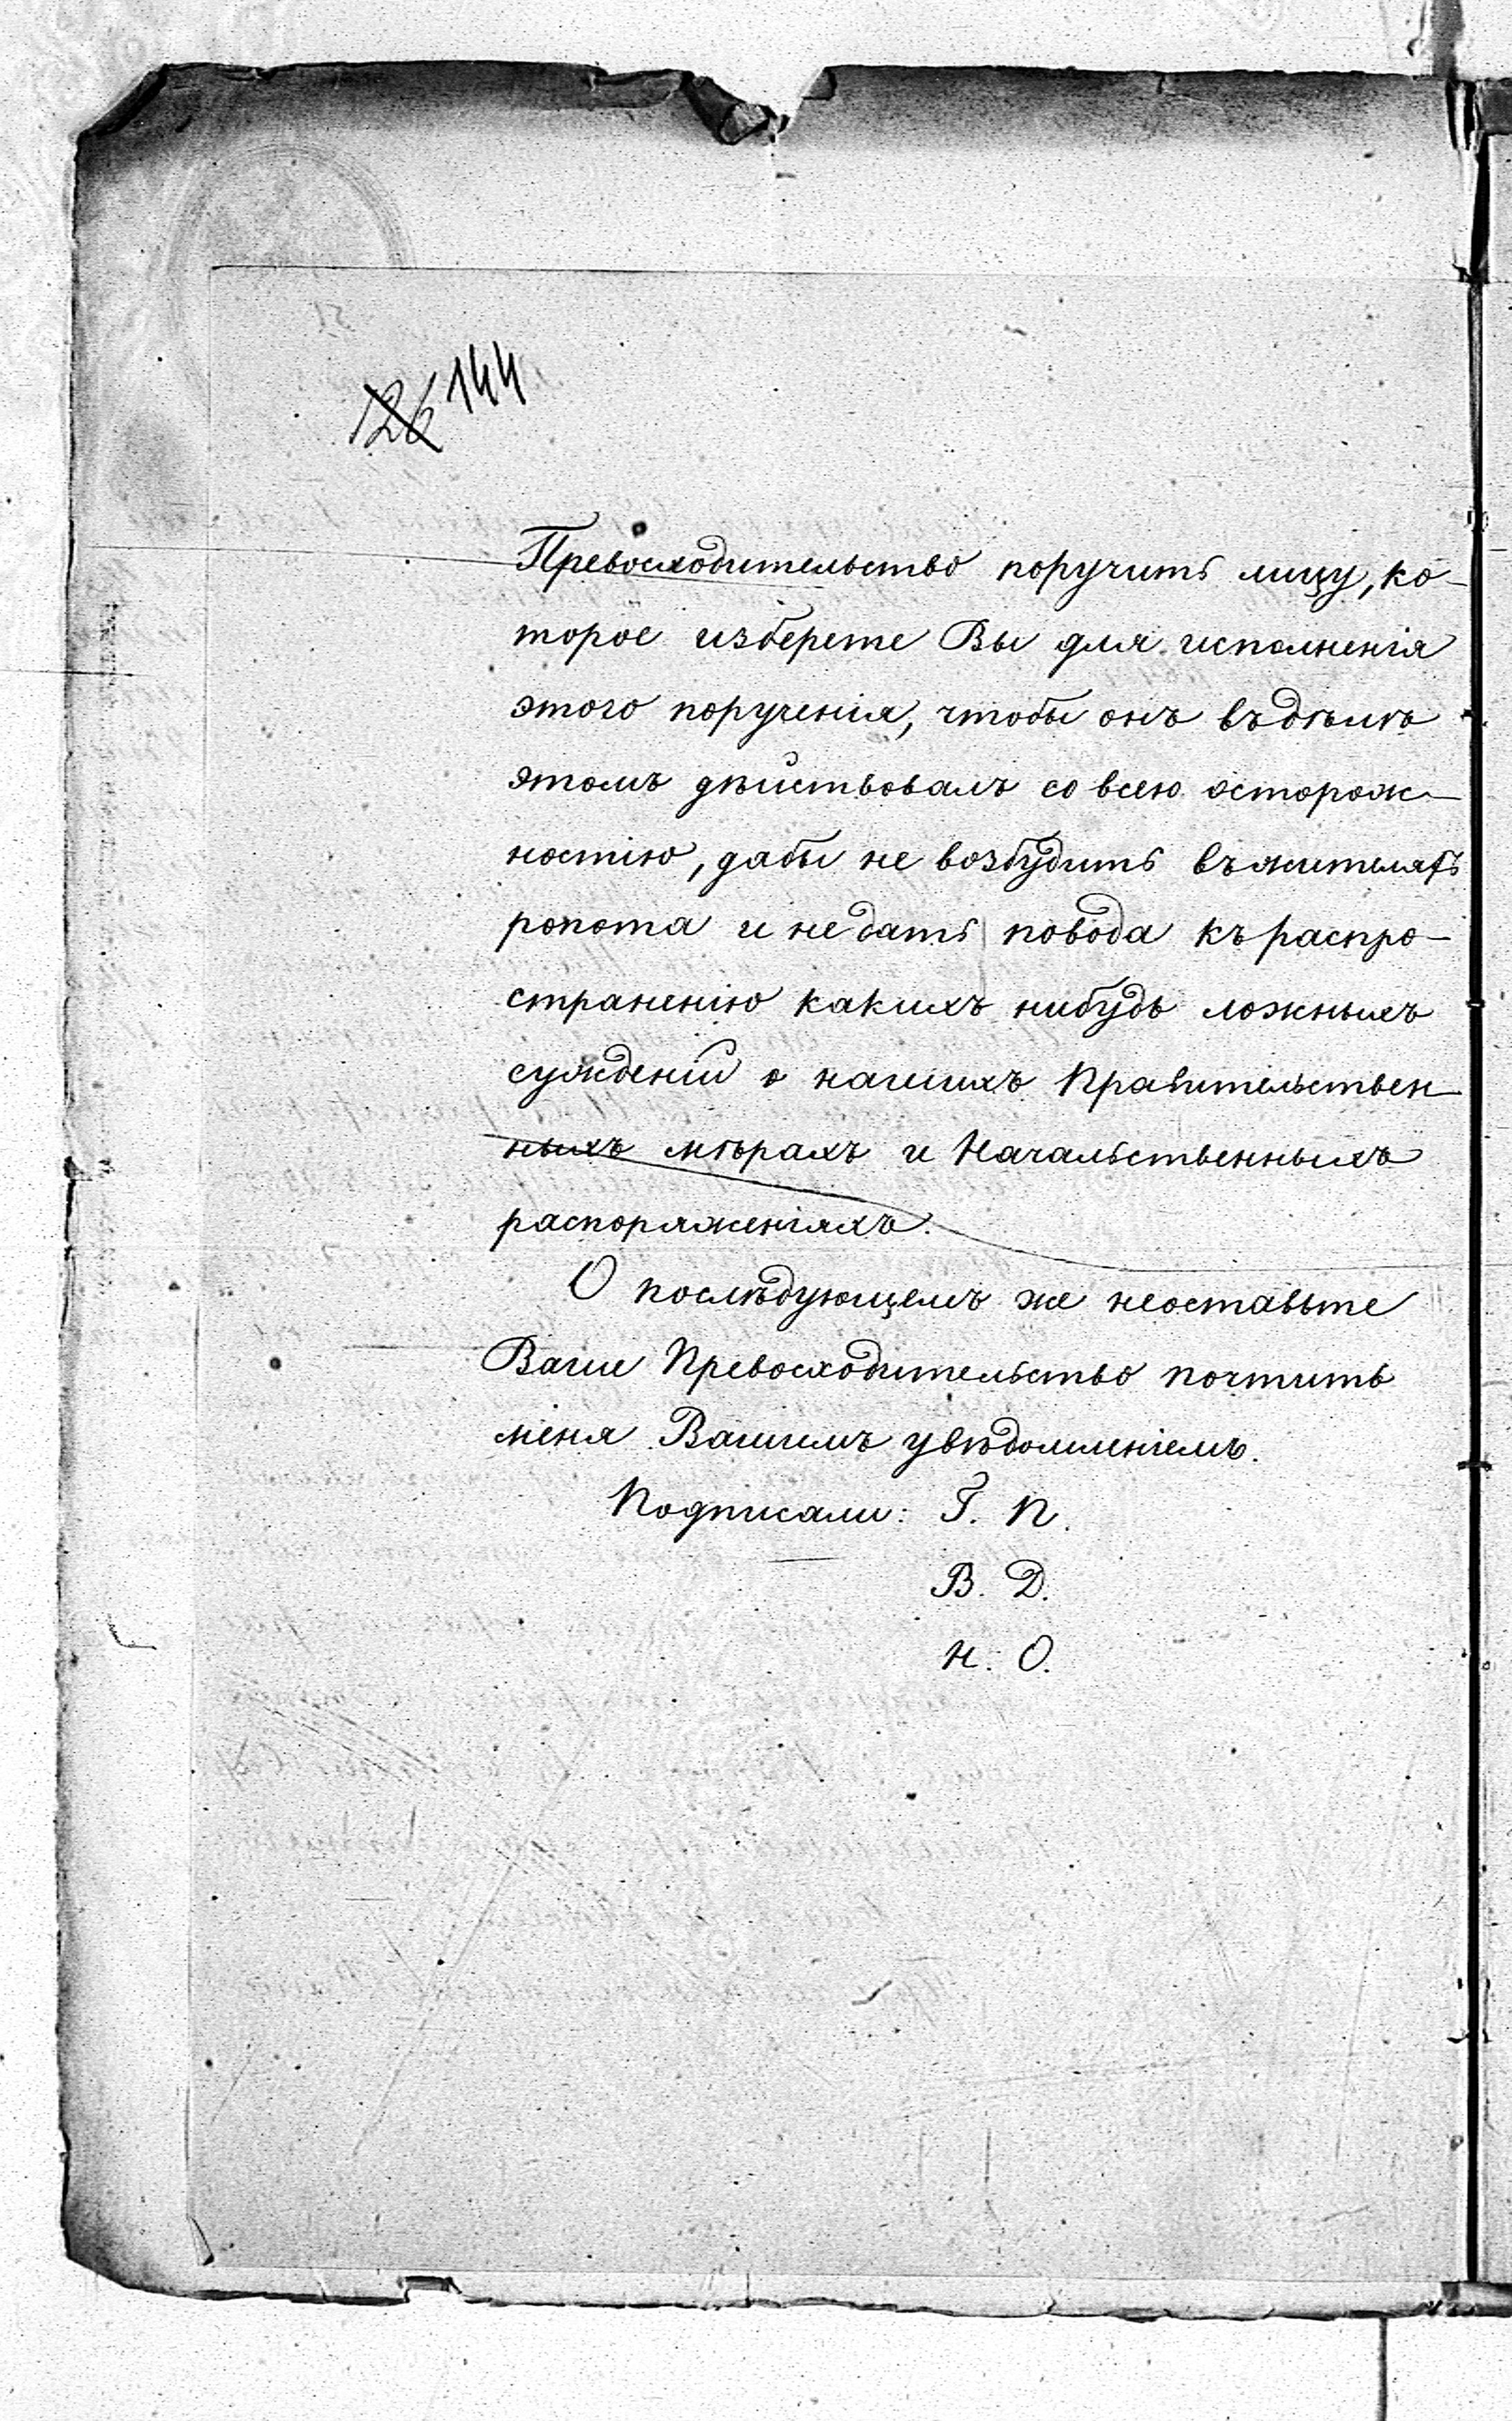 126 144
Превосходительство поручить лицу, ко-
торое изберете Вы для исполненія
этого порученія, чтобы онъ въ дѣлѣ
этомъ дѣйствовалъ со всею осторож-
ностію, дабы не возбудить въ жителяхъ
ропота и не дать повода къ распро-
страненію какихъ нибудь ложныхъ
сужденій о нашихъ Правительствен-
ныхъ мѣрахъ и Начальственныхъ
распоряженіяхъ.
О послѣдующемъ же неоставьте
Ваше Превосходительство почтить
меня Вашимъ увѣдомленіемъ.
Подписали: Г. П.
В. Д.
Н. О.